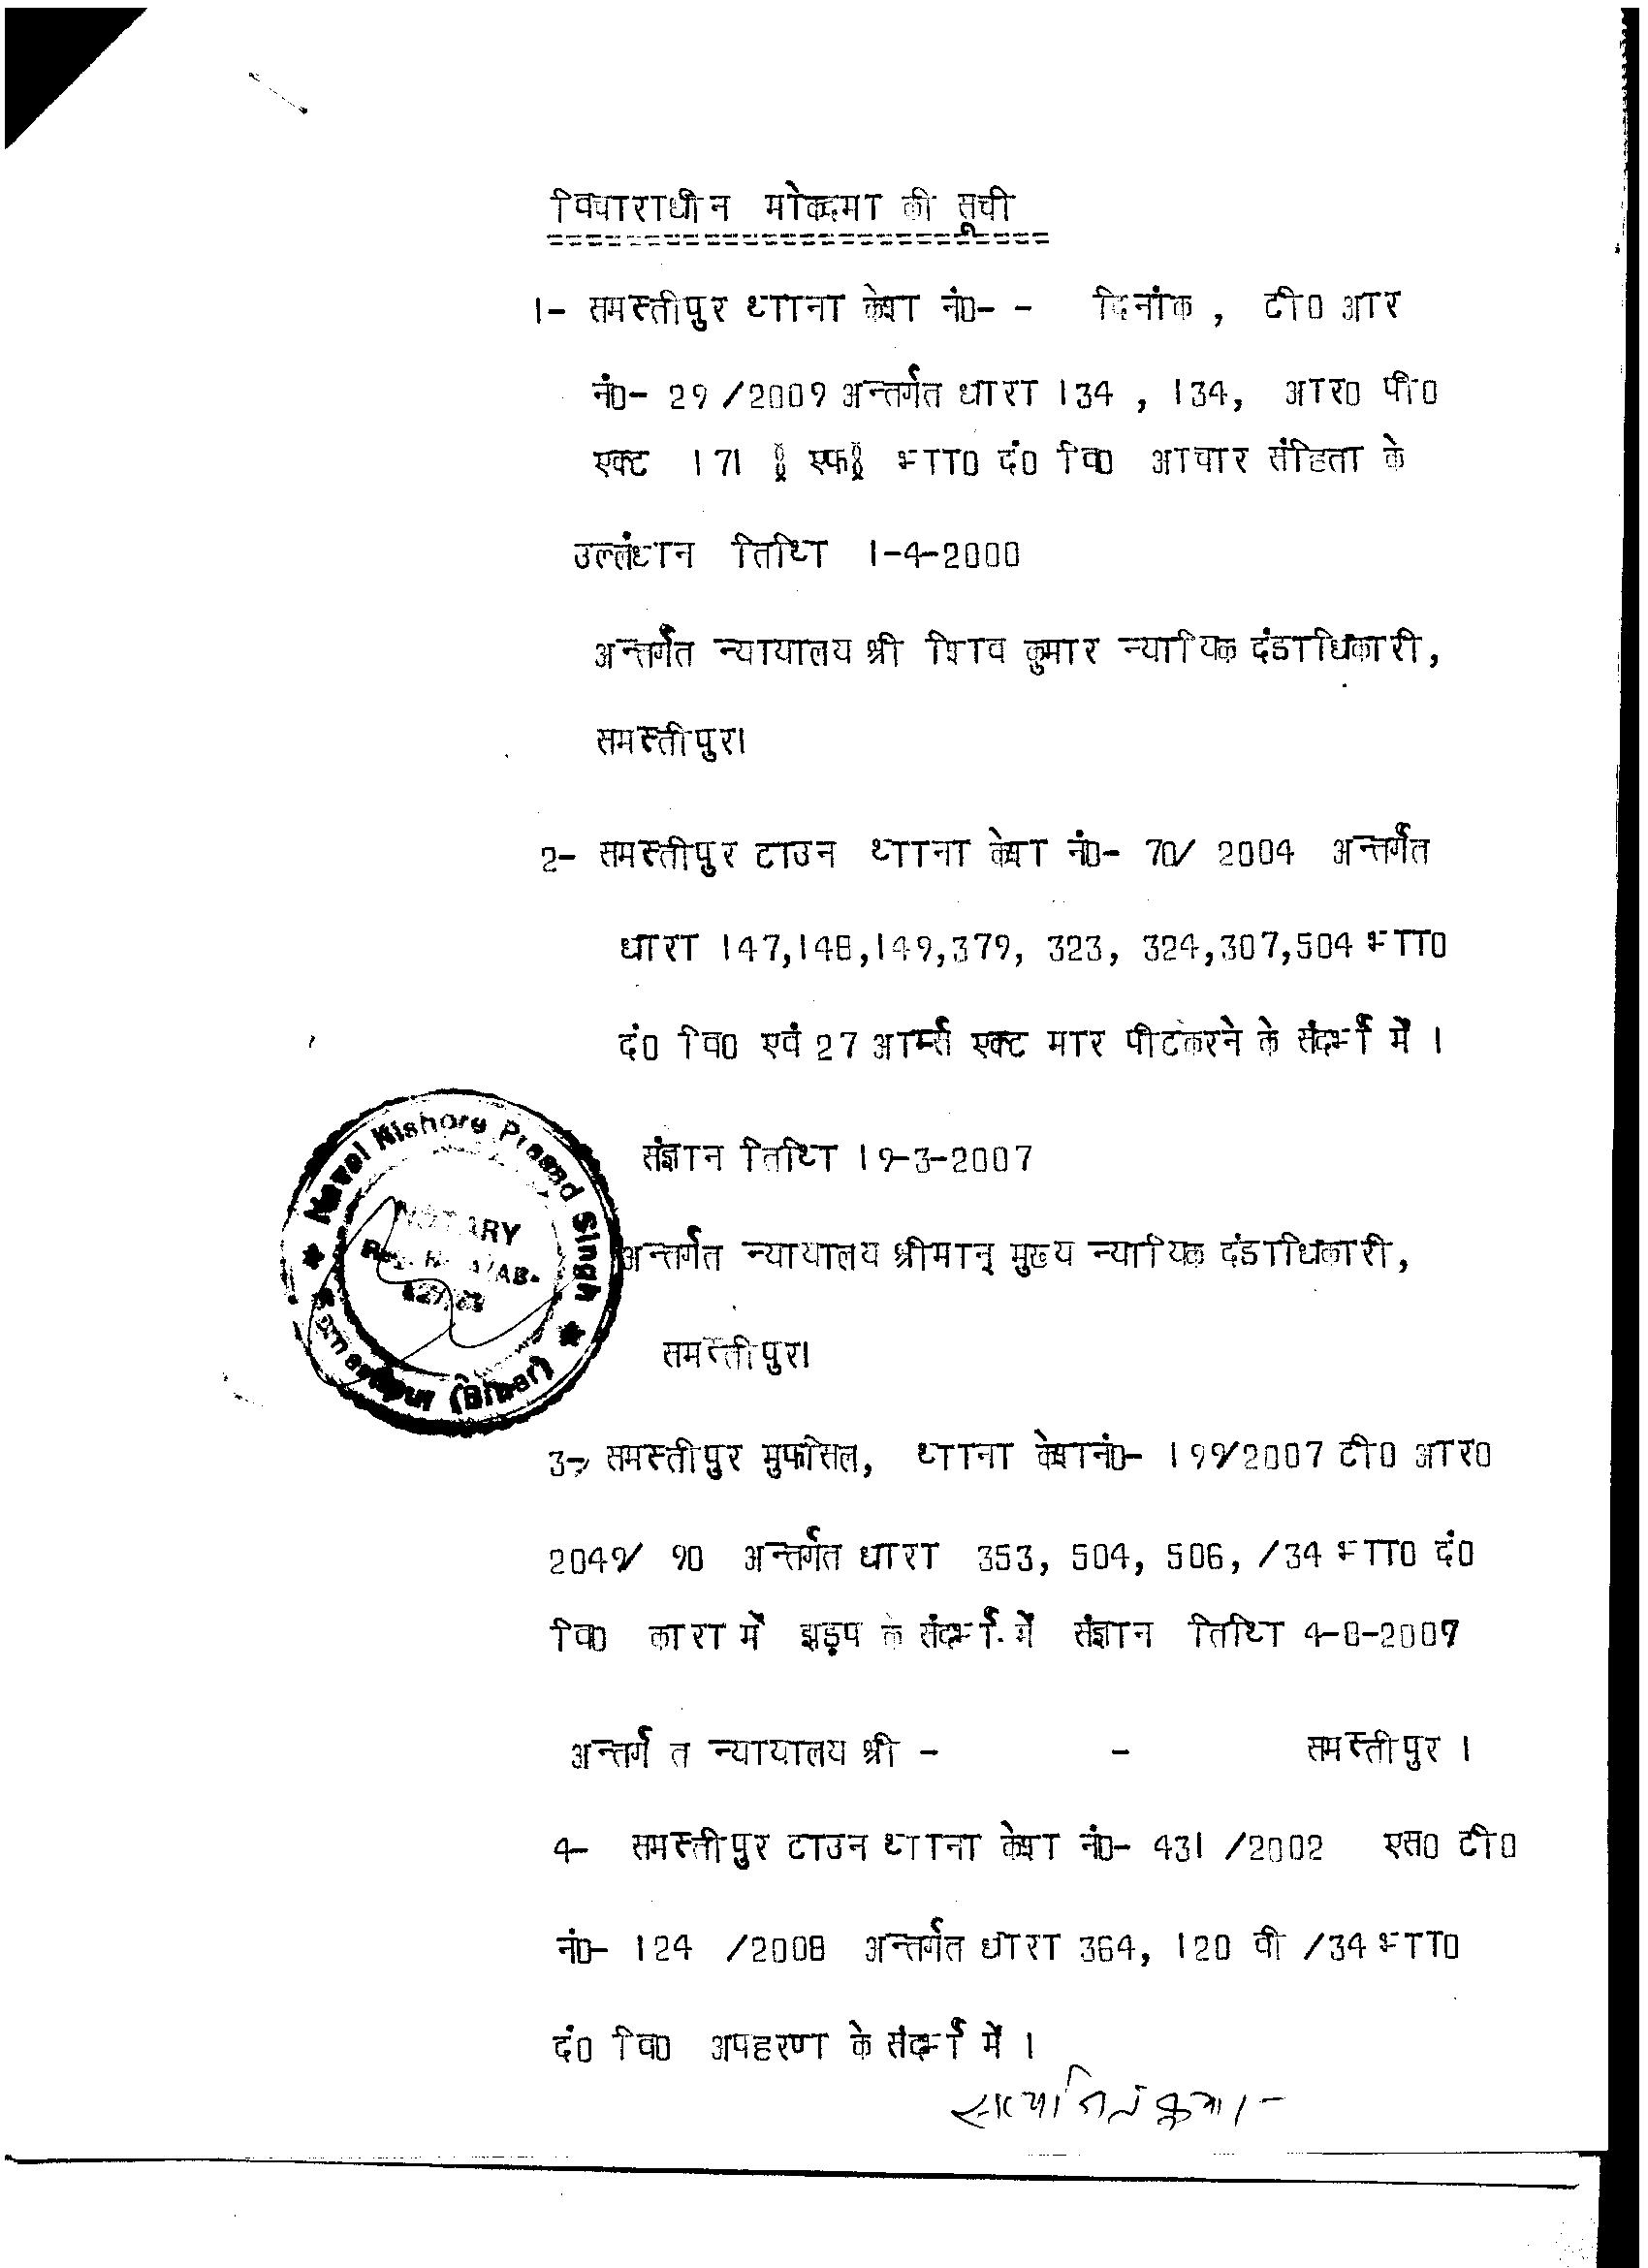 विचाराधीन मोकदमा की सूची
1- समस्तीपुर थाना केश नं0- - दिनांक , टी0 आर
नं0- 29 /2009 अन्तर्गत धारा 134 , 134, आर0 पी0
एक्ट 171 (एफ) भा0 दं0 वि0 आचार संहिता के
उल्लंघान तिथि 1-4-2000
अन्तर्गत न्यायालय श्री शिव कुमार न्यायिक दंडाधिकारी,
समस्तीपुर।
2- समस्तीपुर टाउन थाना केश नं0- 70/ 2004 अन्तर्गत
धारा 147,148,149,379, 323, 324,307,504 भा0
दं0 वि0 एवं 27 आर्म्स एक्ट मार पीटकरने के संदर्भ में ।
संज्ञान तिथि 19-3-2007
अन्तर्गत न्यायालय श्रीमान् मुख्य न्यायिक दंडाधिकारी,
समस्तीपुर।
Naval Kishore Prasad Singh
NOTARY
Samastipur (Bihar)
3- समस्तीपुर मुफसिल, थाना केशनं0- 199/2007 टी0 आर0
2049/ 90 अन्तर्गत धारा 353, 504, 506, /34 भा0 दं0
वि0 कारा में झड़प के संदर्भ में संज्ञान तिथि 4-8-2007
अन्तर्ग त न्यायालय श्री - - समस्तीपुर ।
4- समस्तीपुर टाउन थाना केश नं0- 431 /2002 एस0 टी0
नं0- 124 /2008 अन्तर्गत धारा 364, 120 वी /34 भा0
दं0 वि0 अपहरण के संदर्भ में ।